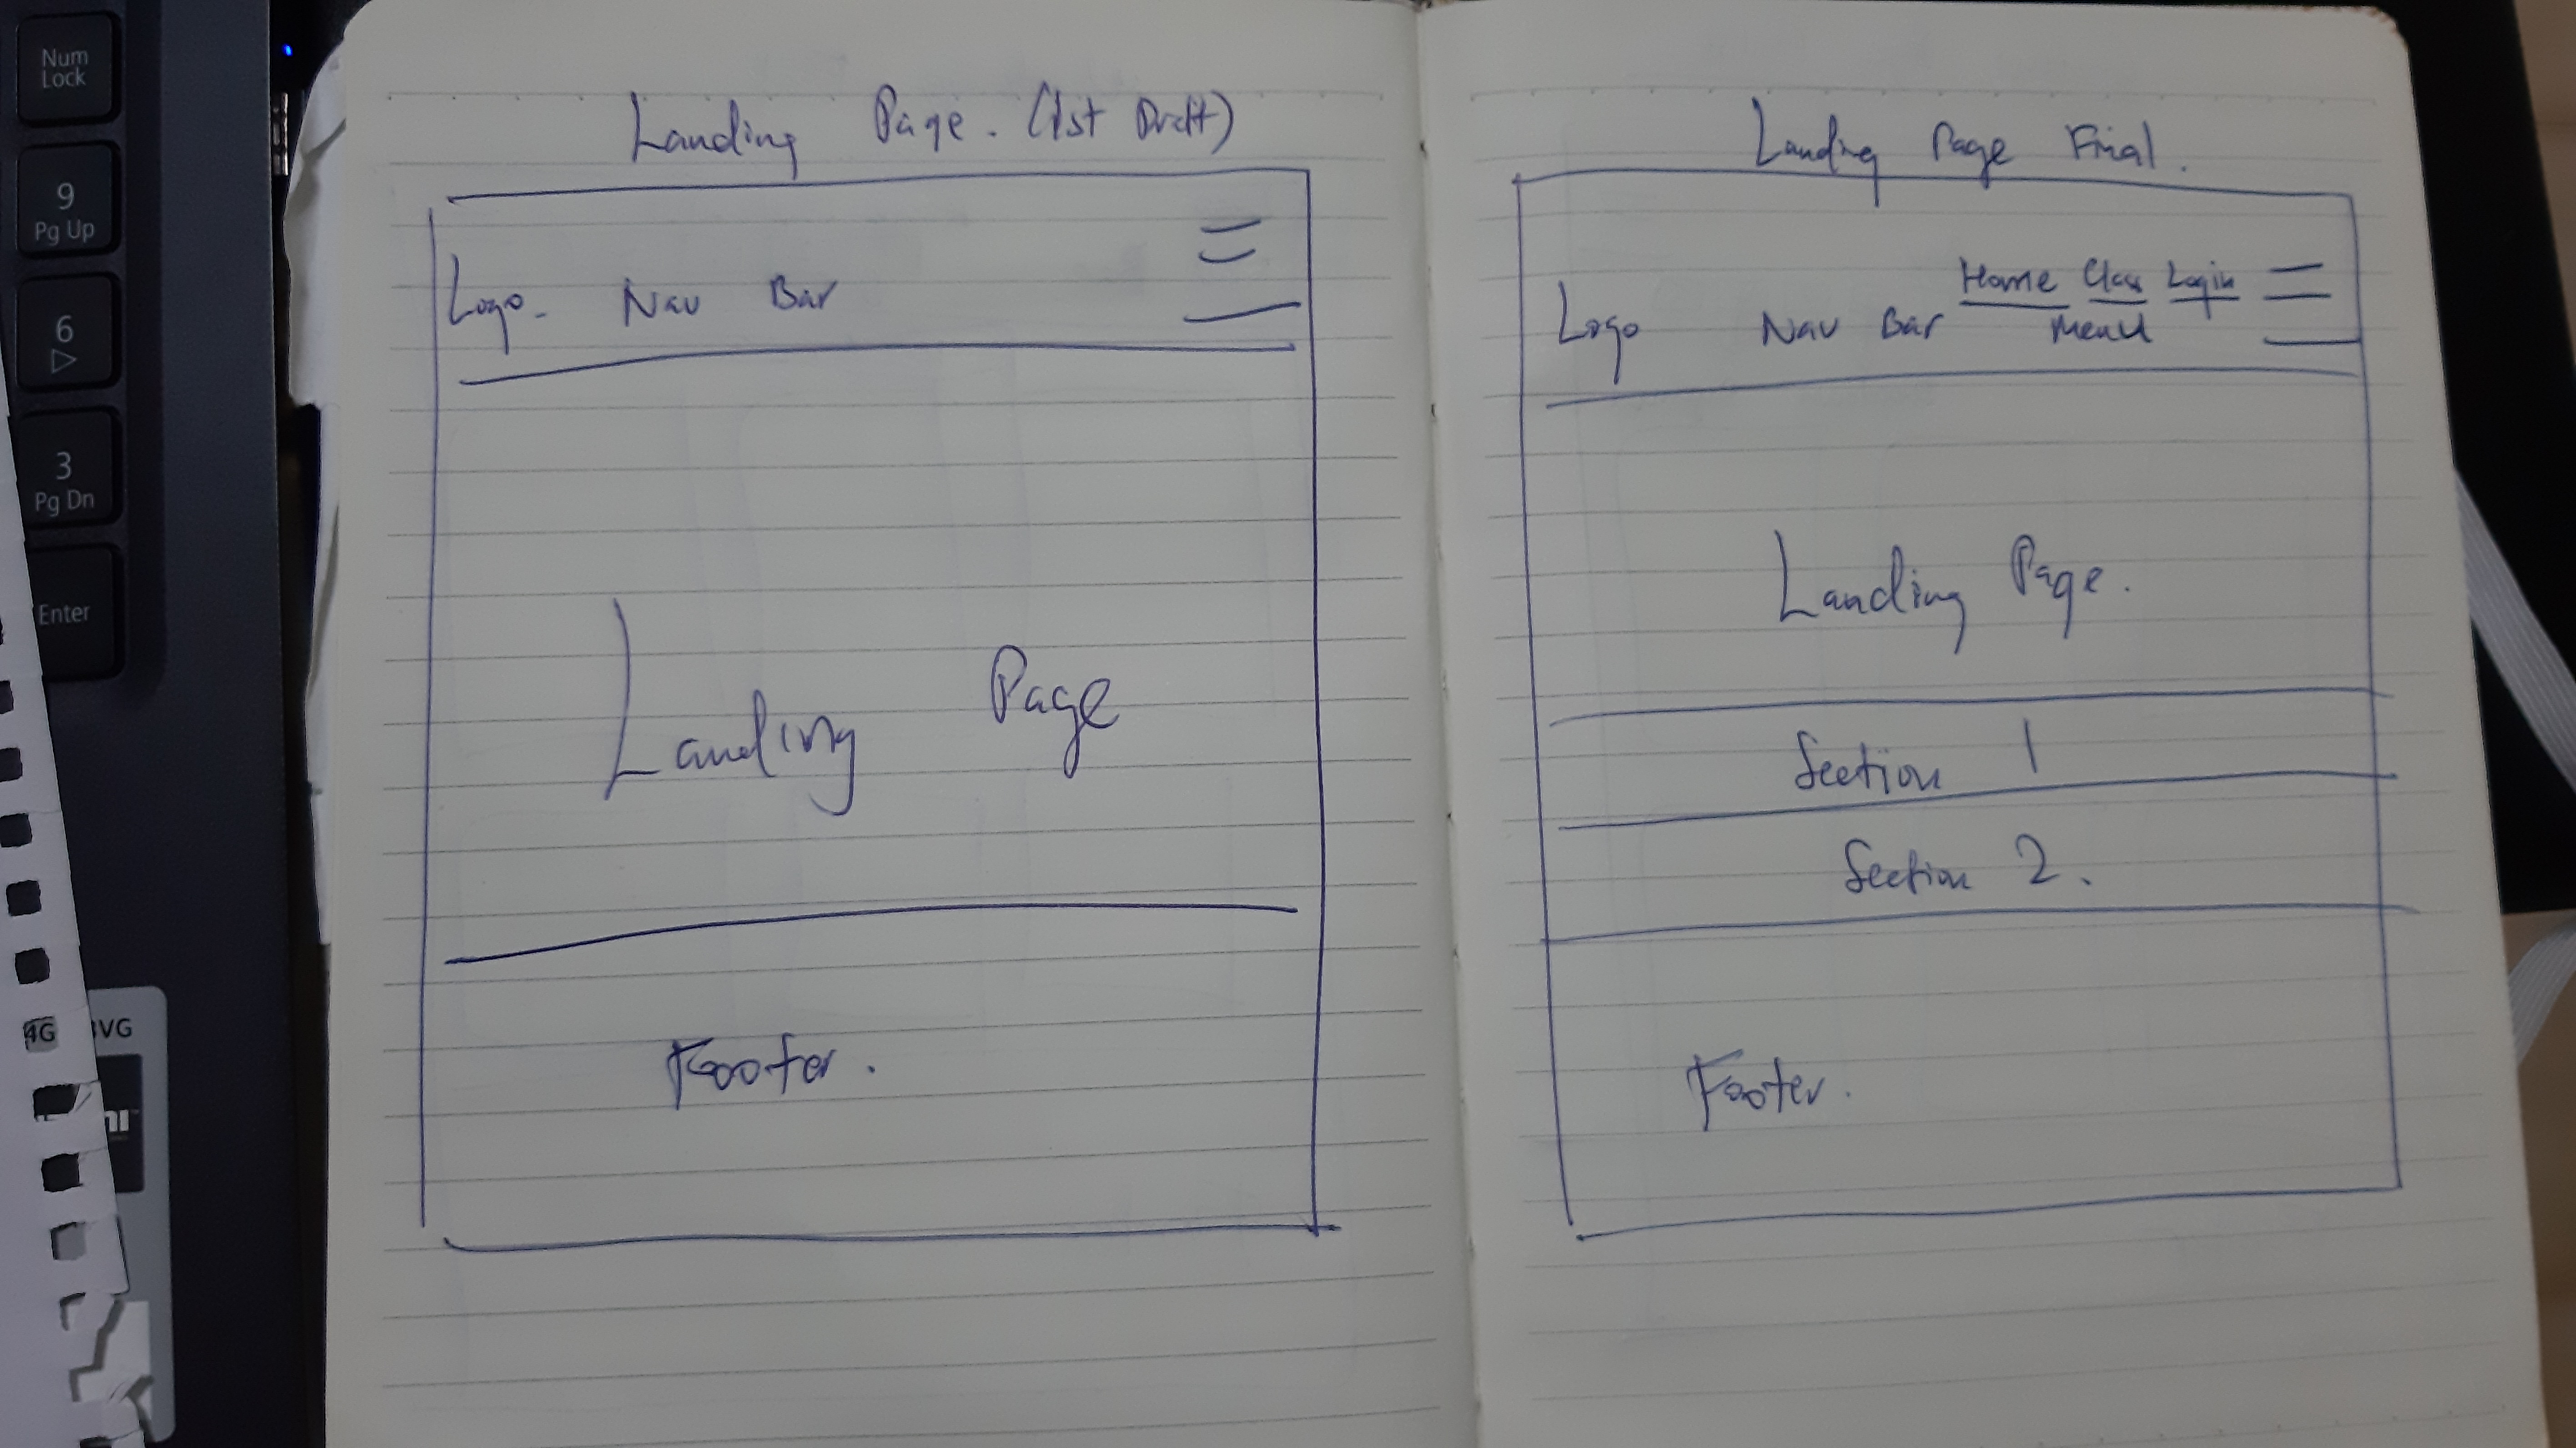 Num Lock
9 Pg Up
6
3 Pg Dn
Enter
4G
Landing Page. (1st Draft)
Logo. Nav Bar
Landing Page
Footer.
Landing Page Final.
Logo Nav Bar Home Class Login
Menu
Landing Page.
Section 1
Section 2.
Footer.